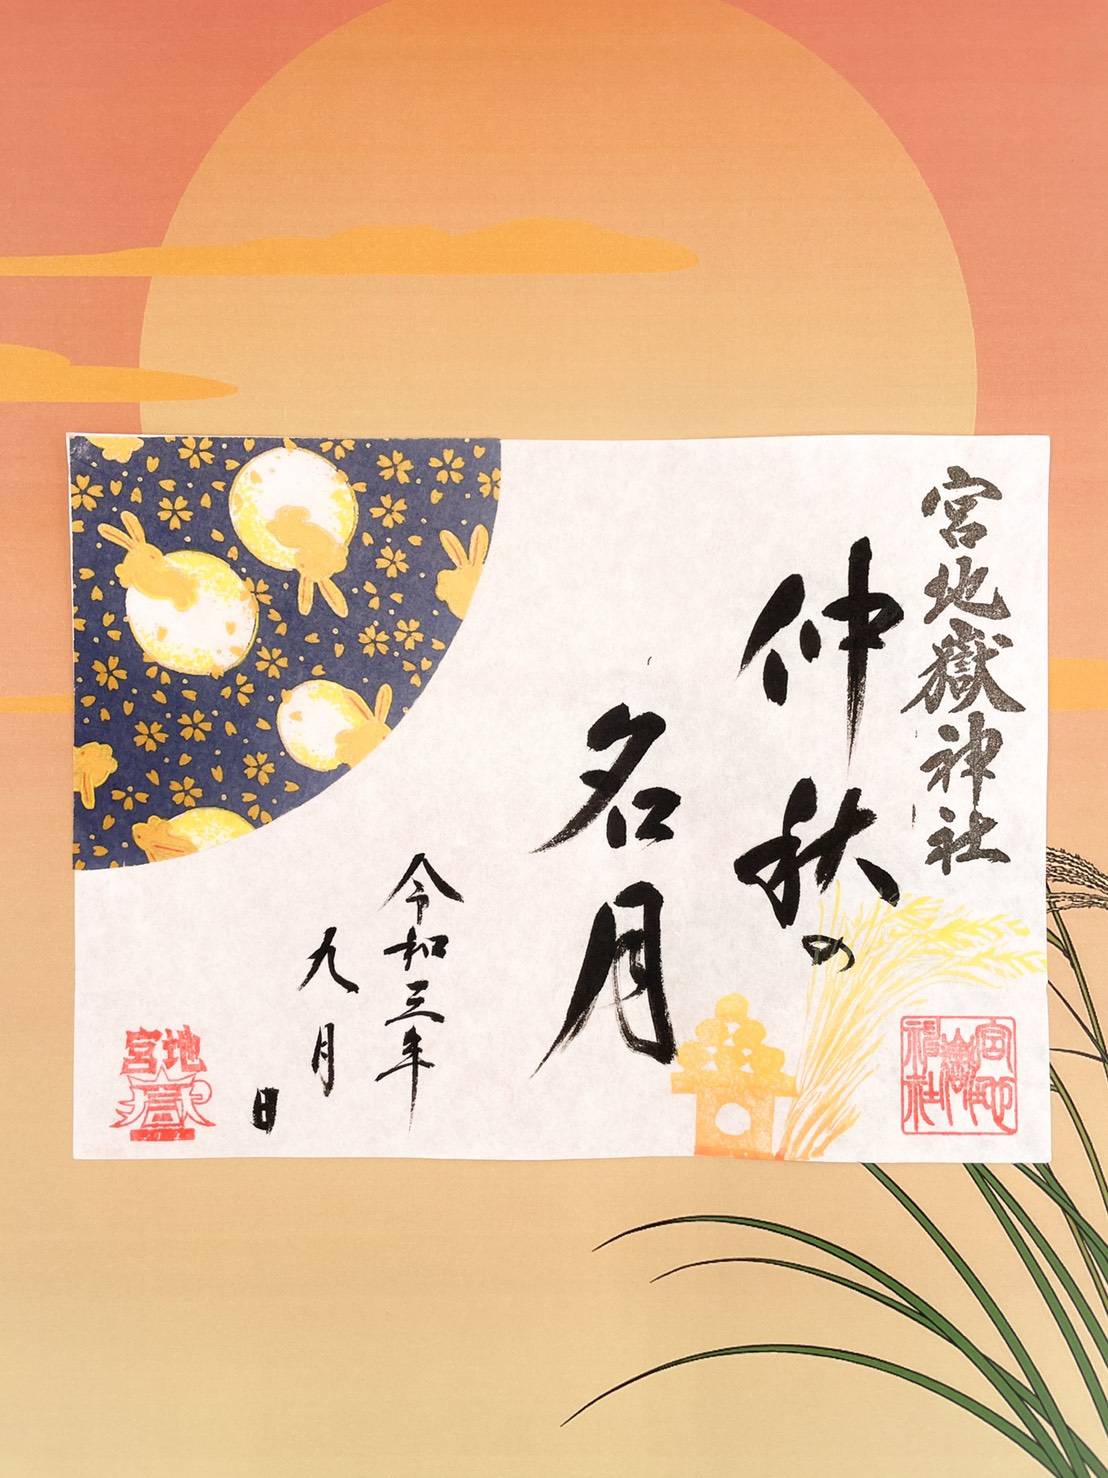 宮地嶽神社
仲秋の
名月
令和三年
九月
日
宮地嶽神社
宮地
嶽